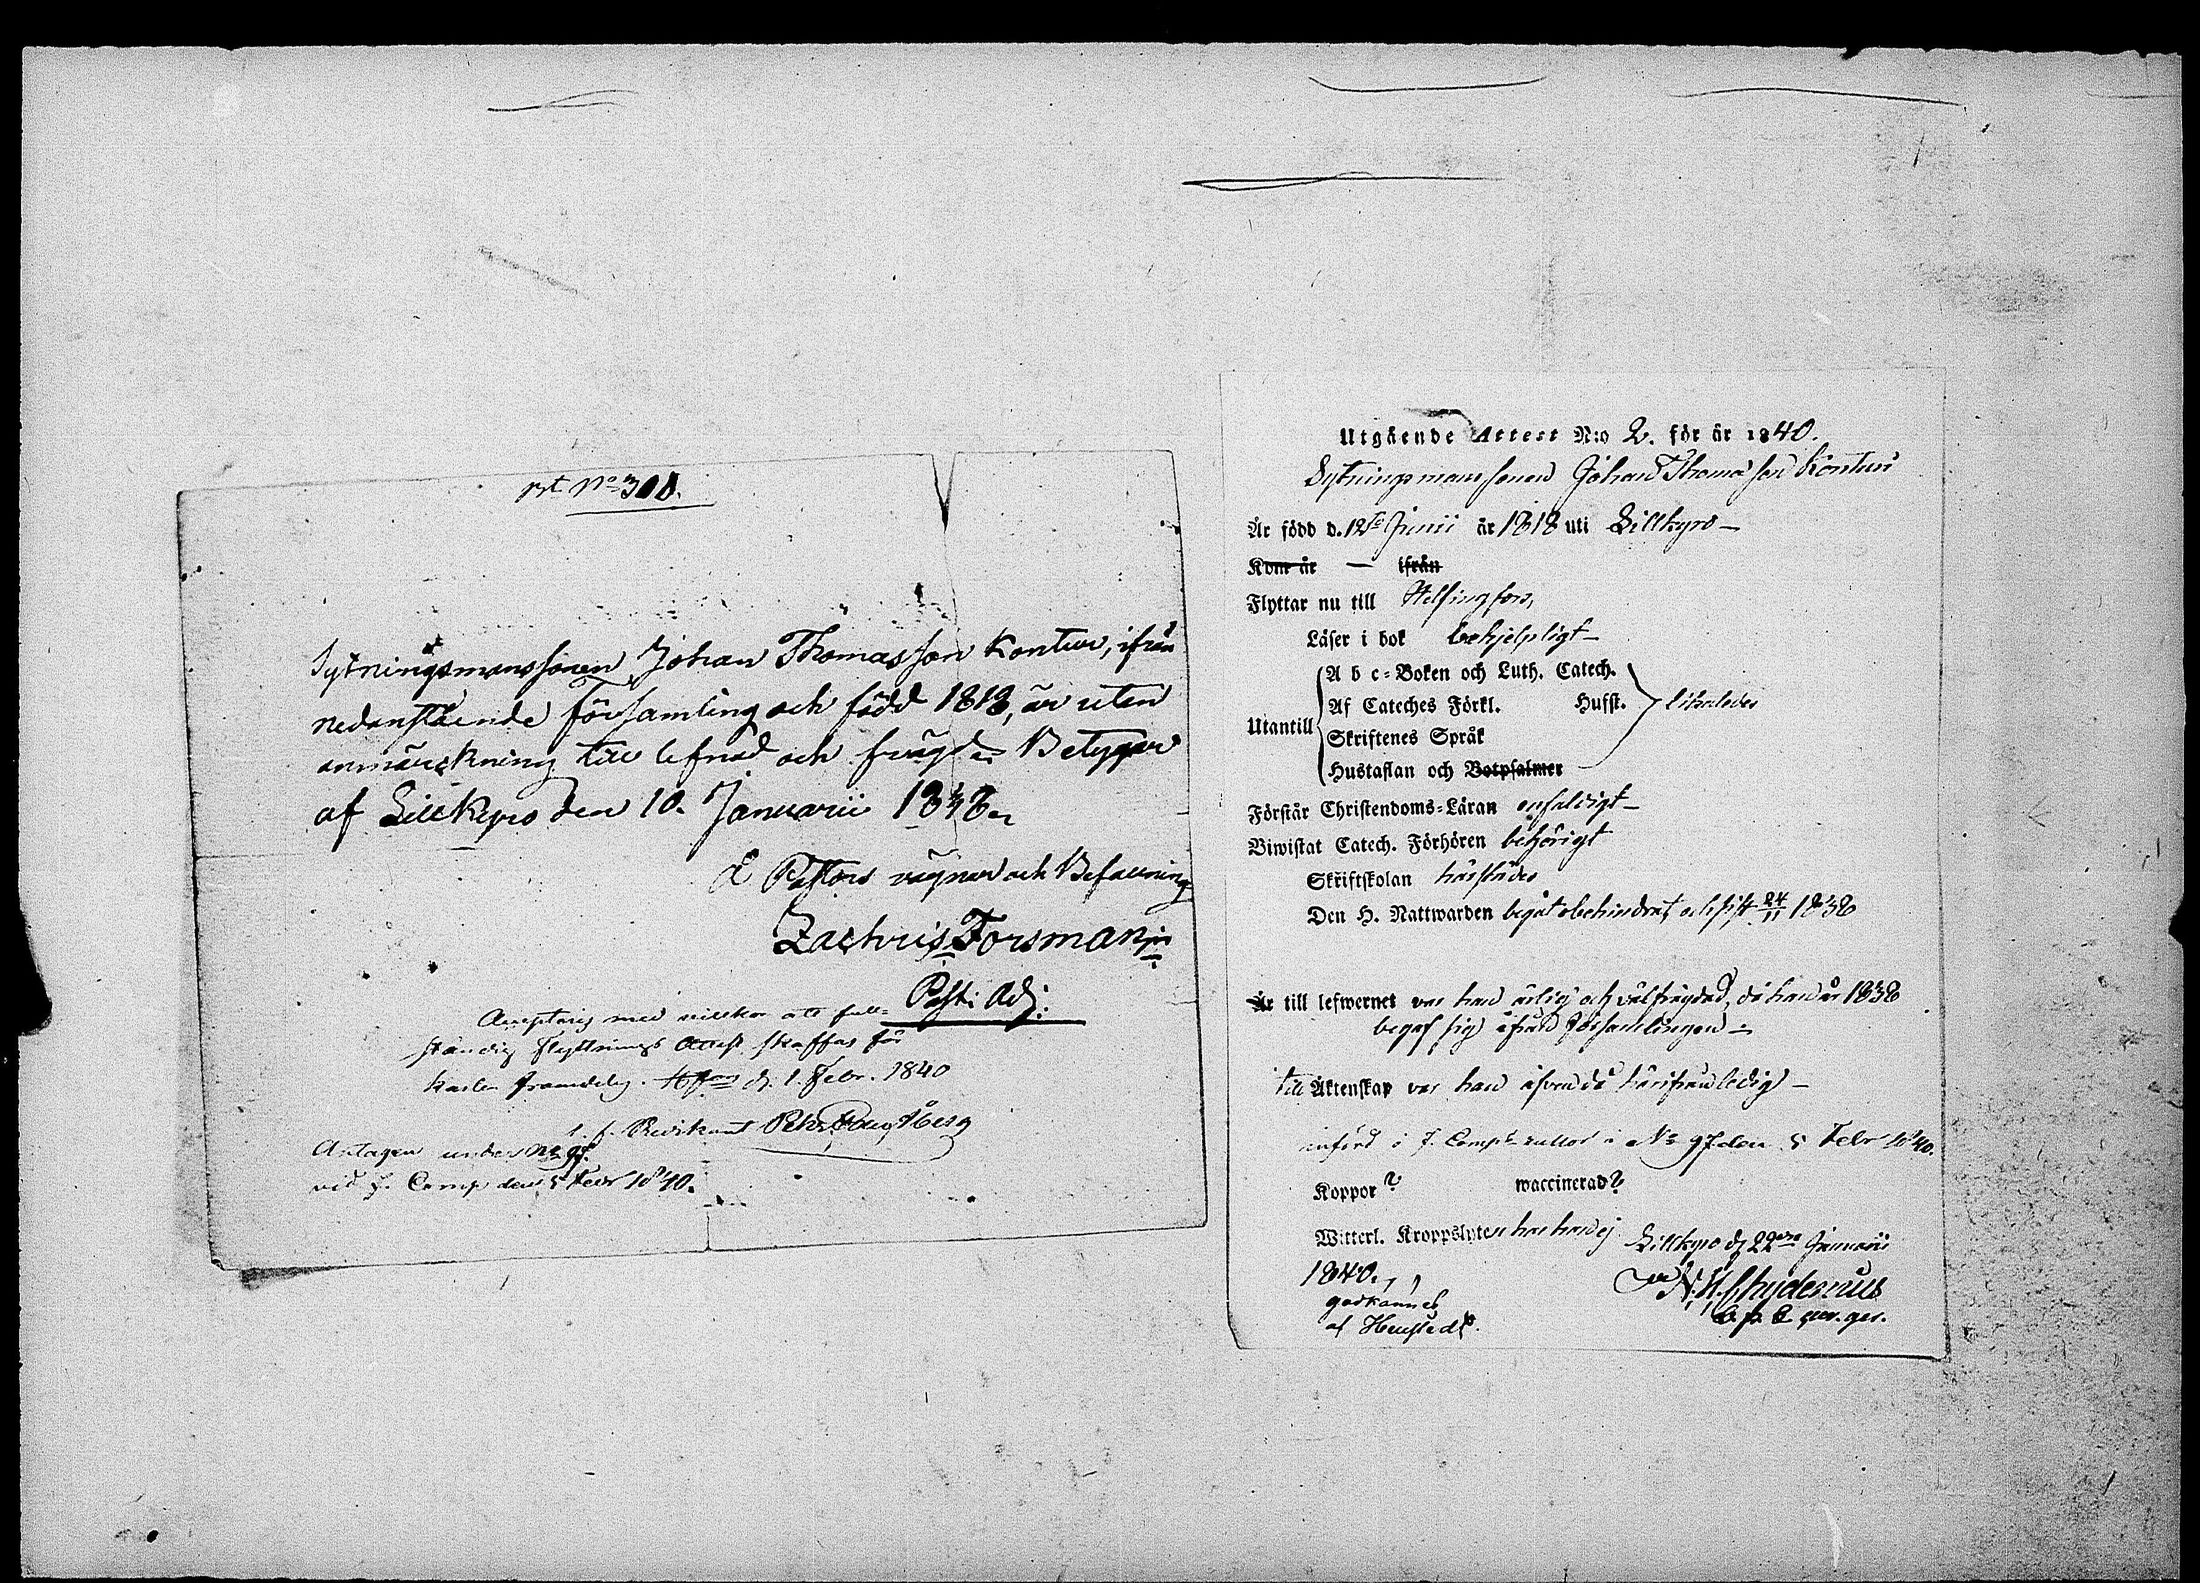 pt. No 308.
Sytningsmanssonen Johan Thomasson Konturi, ifrån
nedanstående församling och född 1818, är utan
anmärckning till lefnad och frägd. Betygar
af Lillkyro den 10. Januarii 1838.
å Pastors vägnar och Befallning
Zachris Forsman
Past: Adj:
Accepteras med villkor att full-
ständig flyttnings Attest skaffas för
karlen framdeles. H:fors d. 1. Febr. 1840
t. f. Predikant
Antagen under No 97.
vid 7. Comp. den 5 Febr 1840.
Utgående Attest N:o 2. för år 1840.
Sytningsmanssonen Johan Thomasson Konturi
Är född d. 12te Junii år 1818 uti Lillkyro –
Kom år — ifrån
Flyttar nu till Helsingfors,
Läser i bok behjelpligt –
Utantill
A b c-Boken och Luth. Catech.
Af Cateches Förkl. Husft. likaledes
Skriftenes Språk
Hustaflan och Botpsalmer
Förstår Christendoms-Läran enfaldigt –
Biwistat Catech. Förhören behörigt
Skriftskolan härstädes
Den H. Nattwarden begåt obehindrat och sist 24/11 1838
Är till lefwernet var han ärlig och välfrägdad, då han år 1838
begaf sig ifrån Församlingen –
till Äktenskap var han äfven då härifrån ledig –
införd i 7. Comp:s rullor i No 97 den 5 Febr 1840.
Koppor? waccinerad?
Witterl. Kroppslyten har han ej Lillkyro d. 22dra Januarii
1840.
N. H. Chydenius
godkännes
af